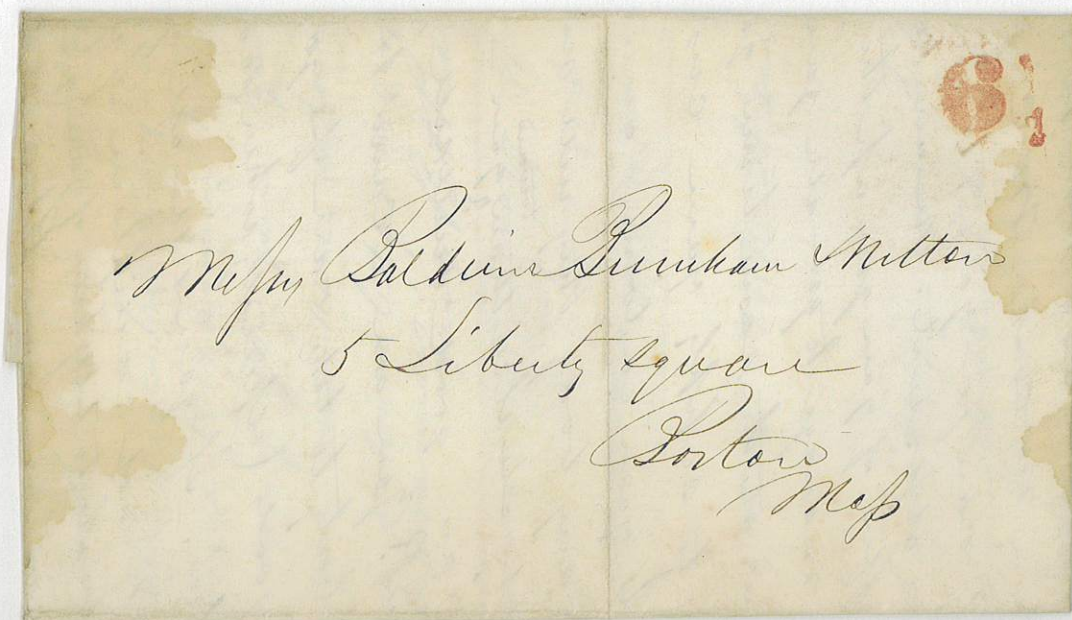 6
Messrs Baldwin Burnham Milton
5 Liberty square
Boston
Mass